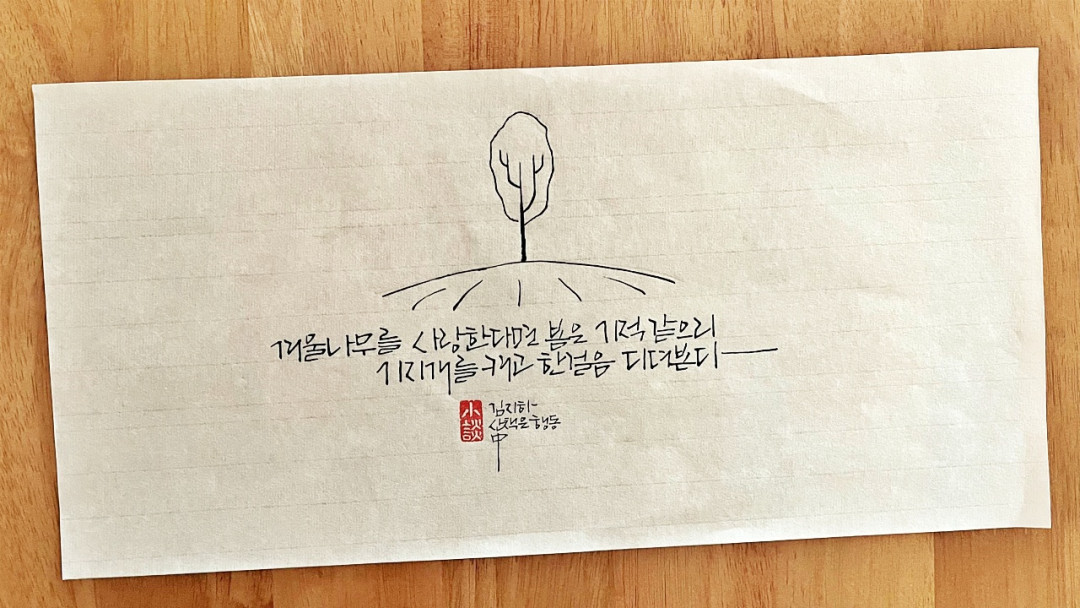 겨울나무를 사랑한다면 봄은 기적같으리
기지개를 켜고 한걸음 디뎌본다
小談
김지하-
산책은행동
中